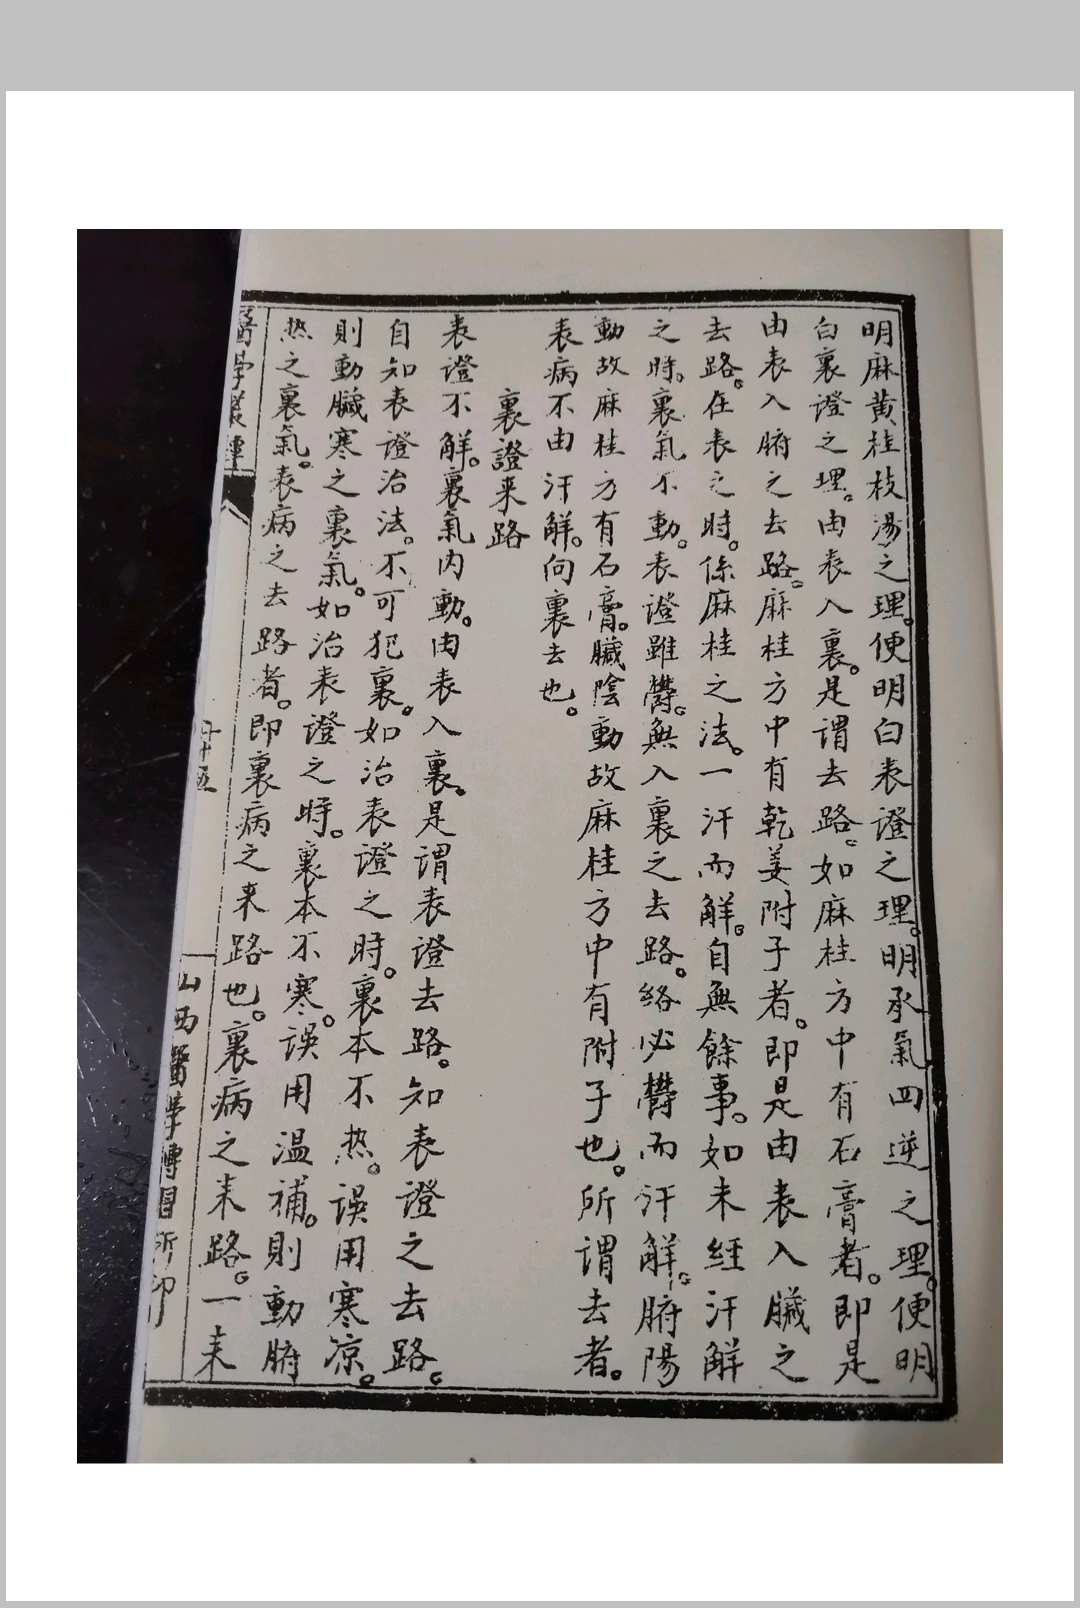 明麻黄桂枝湯之理。便明白表證之理。明承氣四逆之理。便明
白裏證之理。由表入裏。是謂去路。如麻桂方中有石膏者。即是
由表入腑之去路。麻桂方中有乾姜附子者。即是由表入臟之
去路。在表之時。係麻桂之法。一汗而解。自無餘事。如未經汗解
之時。裏氣不動。表證雖鬱。無入裏之去路。絡必鬱而汗解。腑陽
動故麻桂方有石膏。臟陰動故麻桂方中有附子也。所謂去者。
表病不由汗解。向裏去也。
裏證来路
表證不解。裏氣内動。由表入裏。是謂表證去路。知表證之去路。
自知表證治法。不可犯裏。如治表證之時。裏本不热。誤用寒凉。
則動臟寒之裏氣。如治表證之時。裏本不寒。誤用温補。則動腑
热之裏氣。表病之去路者。即裏病之来路也。裏病之来路。一来
醫學
山西醫學傳習所印